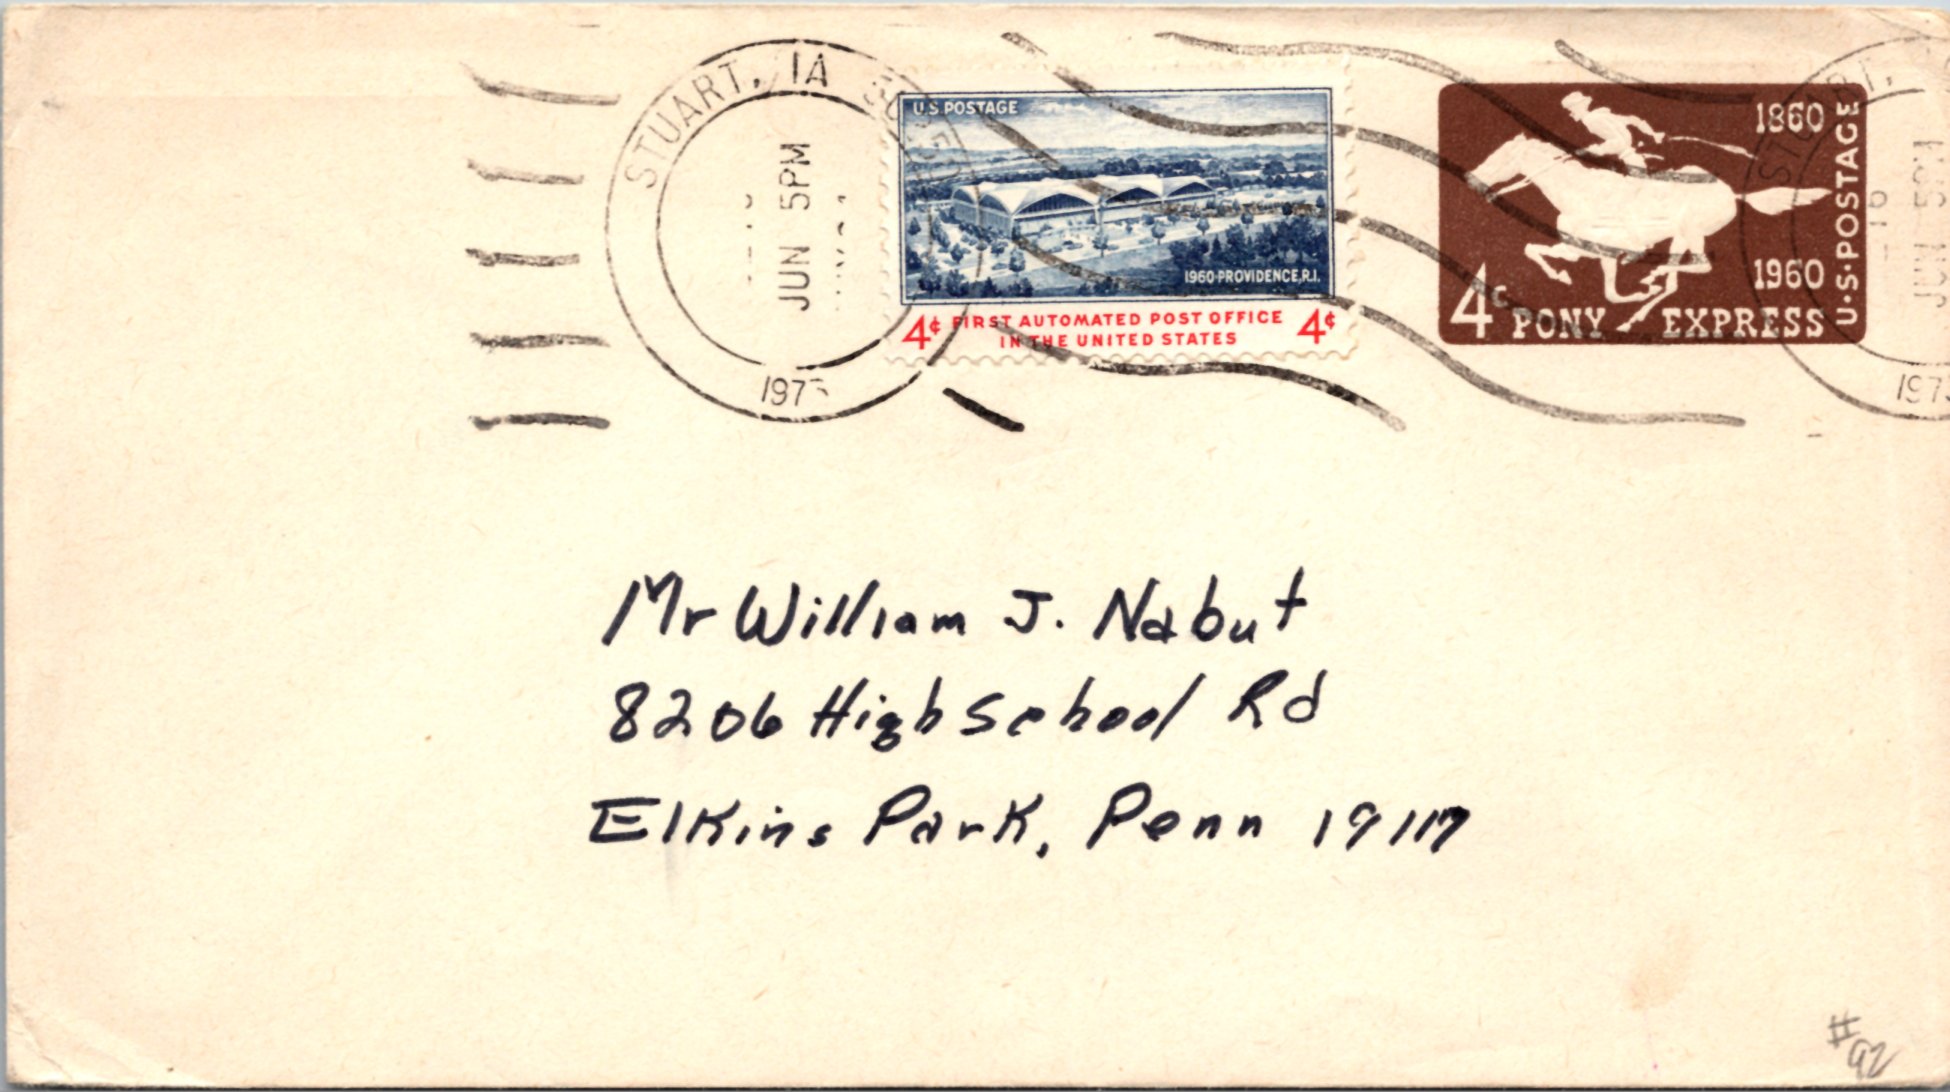 STUART, IA
JUN 5PM
197
U.S. POSTAGE
1960-PROVIDENCE, R.I.
4¢ FIRST AUTOMATED POST OFFICE 4¢
IN THE UNITED STATES
1860
1960
U·S·POSTAGE
4¢ PONY EXPRESS
STUART,
16
JUN 5PM
197
Mr William J. Nabut
8206 High School Rd
Elkins Park, Penn 19117
#92